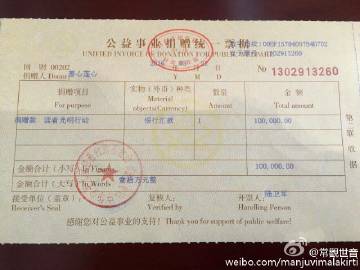 公益事业捐赠统一票据
UNIFIED INVOICE OF DONATION FOR PUBLIC WELFARE
国 财 00202
捐赠人 Donor
Y M D
No 1302913260
捐赠项目 实物(外币)种类 数量 金额
For purpose Material objects(Currency) Amount Total amount
捐赠款 读者光明行动 银行汇款 1 100,000.00
金额合计(小写) In Figures 100,000.00
金额合计(大写) In Words 壹拾万元整
接受单位(盖章) 复核人: 开票人: 陆卫军
Receiver's Seal Verified by Handling Person
感谢您对公益事业的支持! Thank you for support of public welfare!
第二联 收据
@常觀世音
weibo.com/manjuvimalakirti